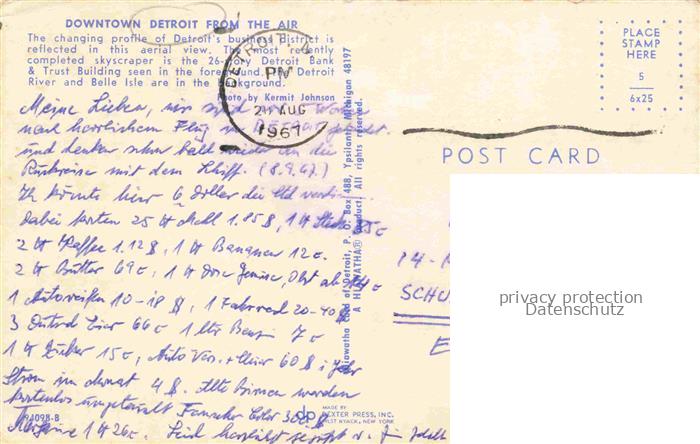 DOWNTOWN DETROIT FROM THE AIR
The changing profile of Detroit's business district is
reflected in this aerial view. The most recently
completed skyscraper is the 26-story Detroit Bank
& Trust Building seen in the foreground. Detroit
River and Belle Isle are in the background.
Photo by Kermit Johnson
DETROIT, M
PM
21 AUG
1967
PLACE
STAMP
HERE
5
6x25
POST CARD
Meine Lieben, wir sind
nach herrlichem Flug
und denken schon bald wieder an die
Rückreise mit dem Schiff. (8.9.67.)
Ihr könnts hier 6 Dollar die Std
Dabei kosten 25 tt Mehl 1.85 $, 1 tt
2 tt Kaffee 1.12 $, 1 tt Bananen 12 c.
2 tt Butter 69 c, 1 tt Dose Gemüse, Obst ab 14 c
1 Autoreifen 10-18 $, 1 Fahrrad 20-40 $
3 Dutzd Eier 66 c 1 ltr Benzin 7 c
1 tt Zucker 15 c, Auto Vers. + Steuer 60 $ i. Jahr
Strom im Monat 4 $. Alte Birnen werden
kostenlos umgetauscht Fernseher Color 300 $
Margarine 1 tt 26 c. Sind herrlich
Hiawatha Card of Detroit, P. O. Box 488, Ypsilanti, Michigan 48197
A HIAWATHA® Product. All rights reserved.
94098-B
dp MADE BY
DEXTER PRESS, INC.
WEST NYACK, NEW YORK
14-
SCHU
E
privacy protection
Datenschutz